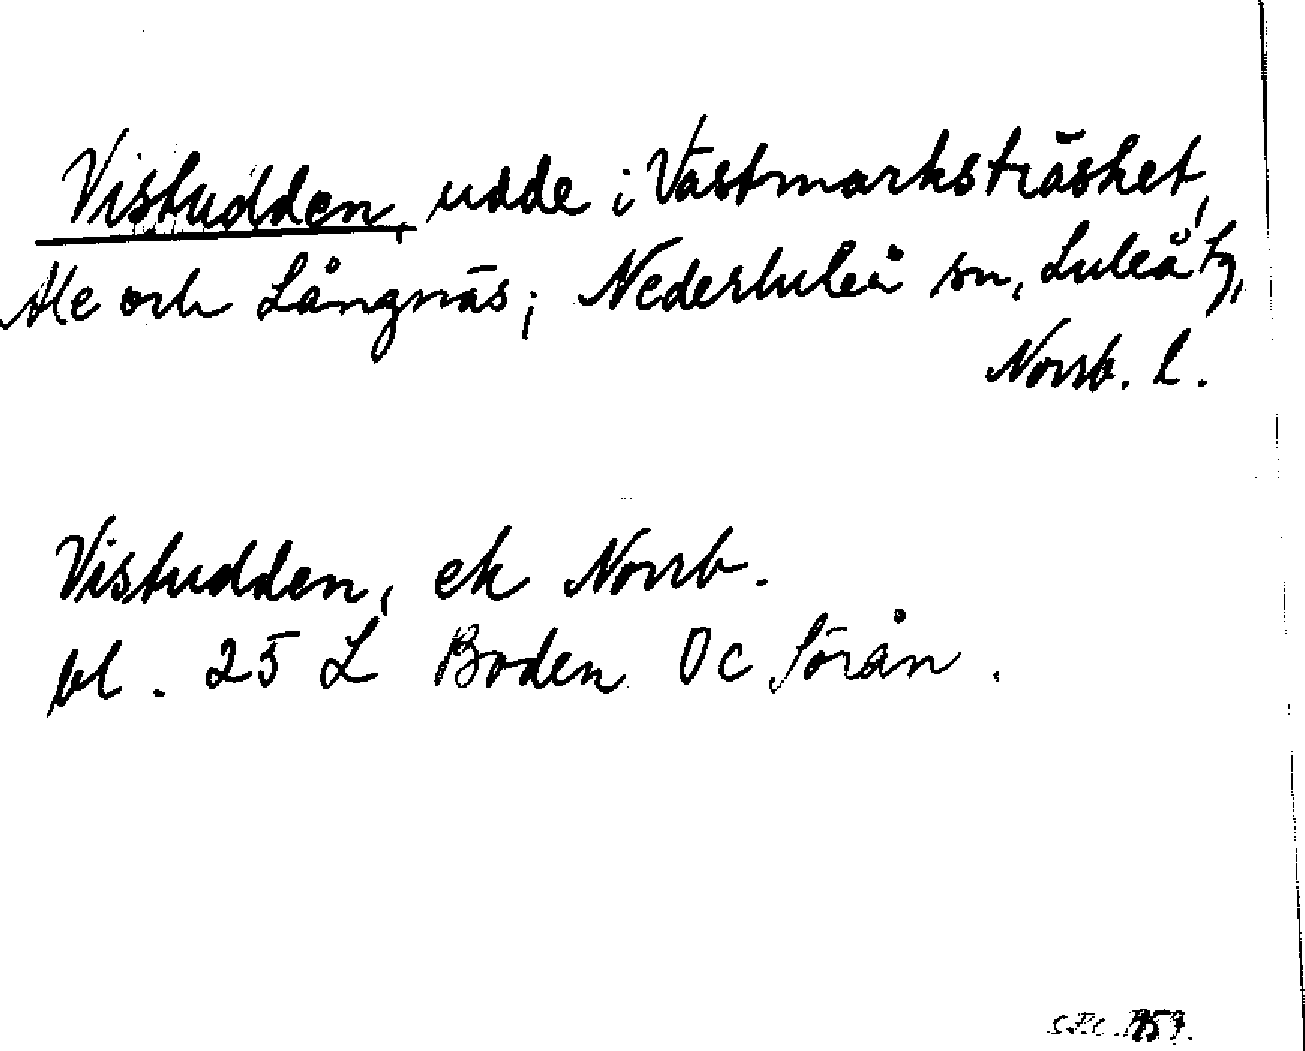 Vistudden, udde i Västmarksträsket,
Ale och Långnäs; Nederluleå sn, Luleå tg,
Norrb. l.
Vistudden, ek Norrb.
bl. 25 L Boden 0c Sörån.